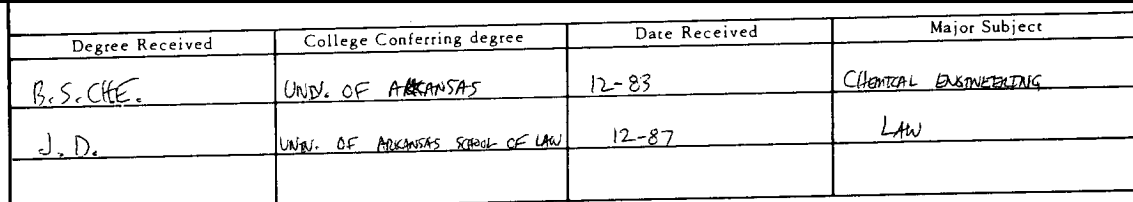 Degree Received College Conferring degree Date Received Major Subject
B.S.CHE. UNIV. OF ARKANSAS 12-83 CHEMICAL ENGINEERING
J.D. UNIV. OF ARKANSAS SCHOOL OF LAW 12-87 LAW